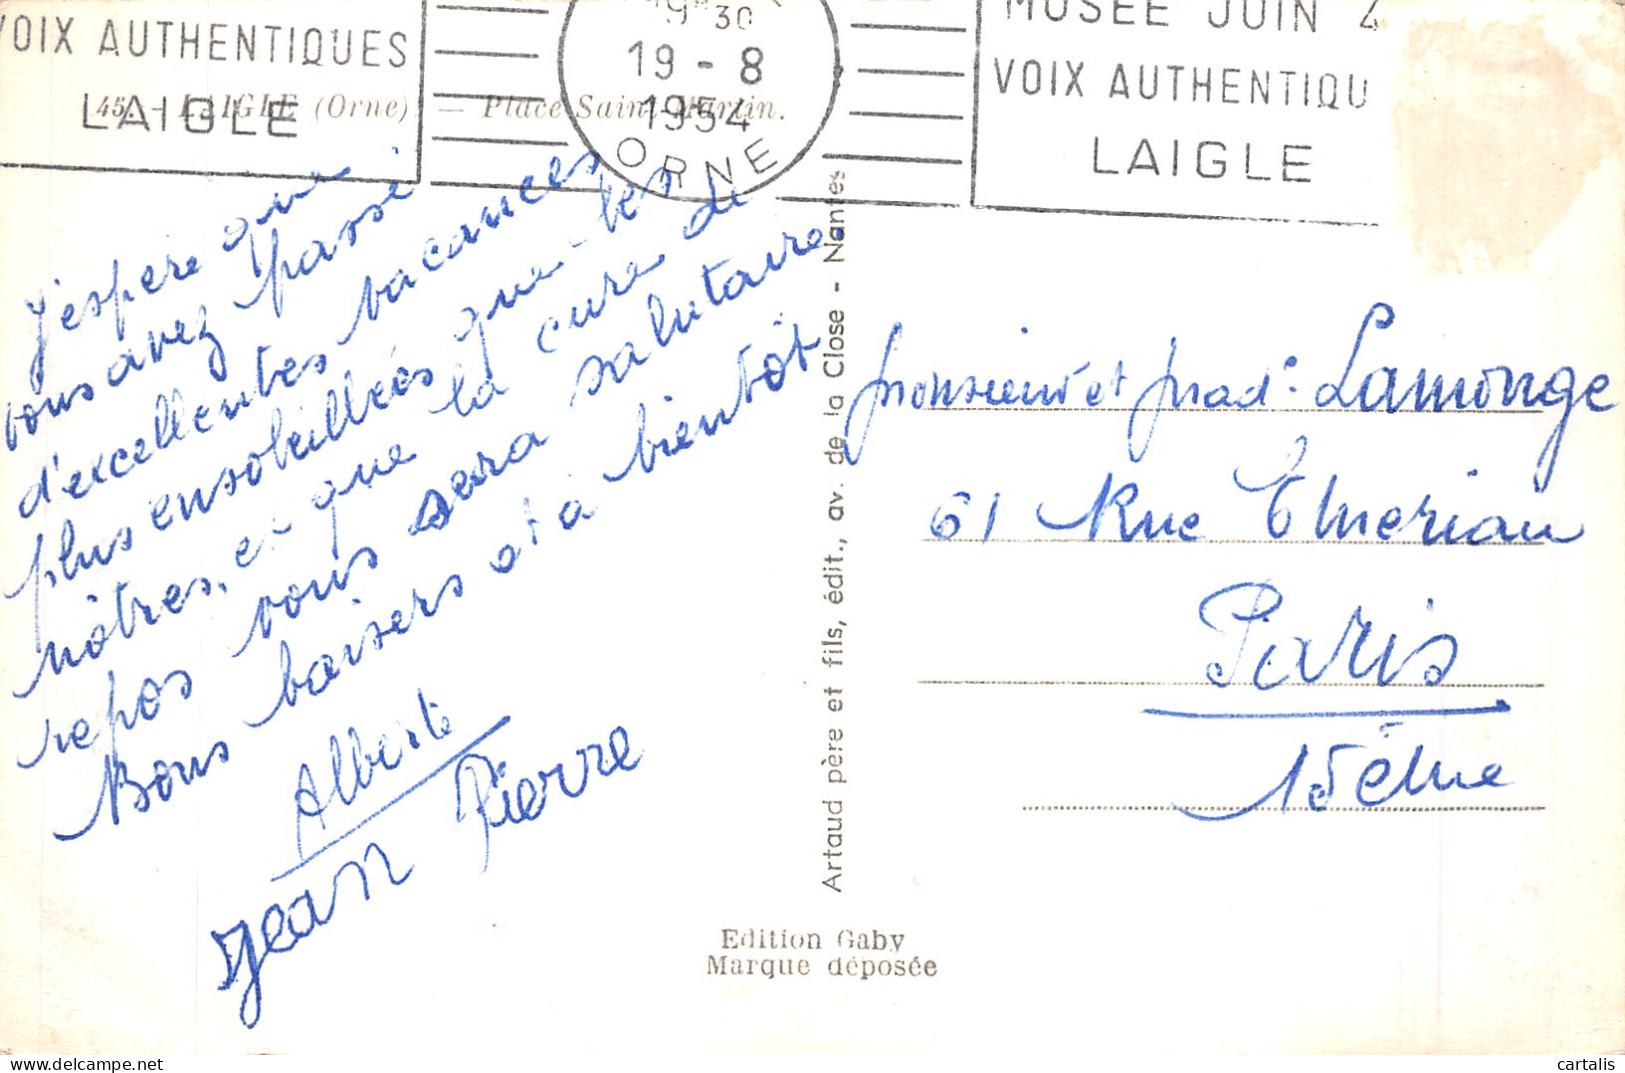 MUSEE JUIN 4
VOIX AUTHENTIQUES
LAIGLE
19H30
19 - 8
1954
ORNE
VOIX AUTHENTIQU
LAIGLE
45. - LAIGLE (Orne). — Place Saint-Martin.
J'espère que
vous avez passé
d'excellentes vacances
plus ensoleillées que les
nôtres, et que la cure de
repos vous sera salutaire.
Bons baisers et à bientôt
Alberte
Jean Pierre
Artaud père et fils, édit., av. de la Close - Nantes
Edition Gaby
Marque déposée
Monsieur et Mad. Lamonge
61 Rue
Paris
15ème
cartalis